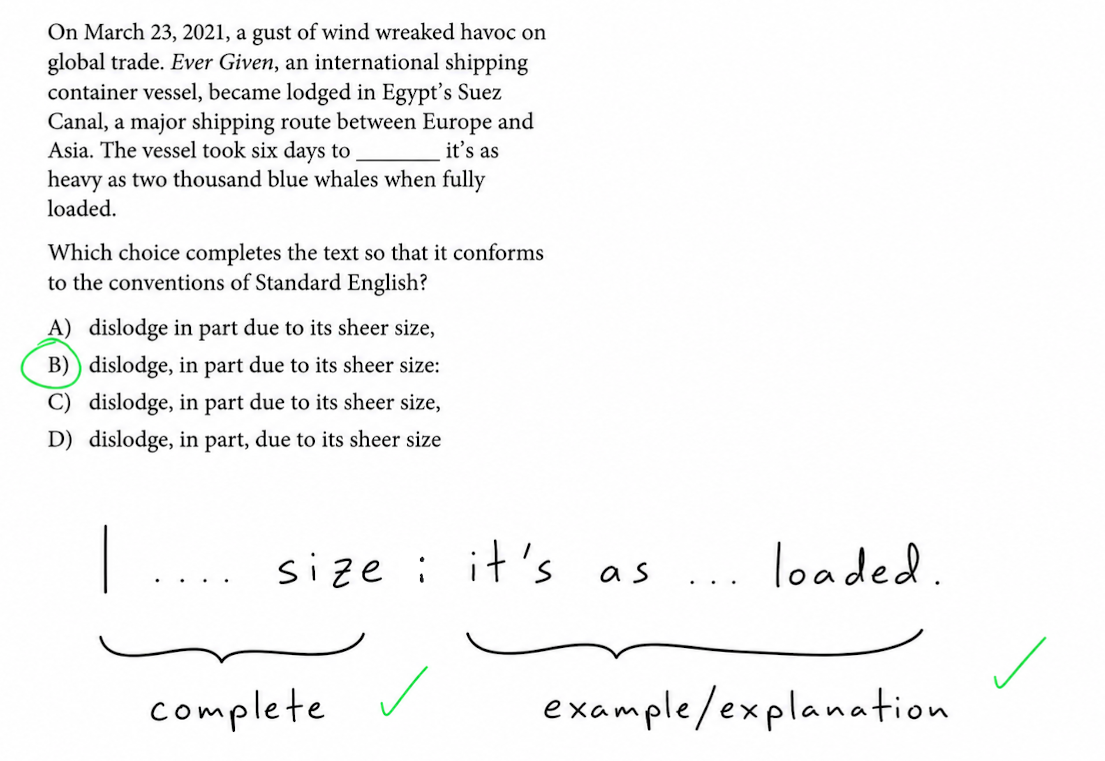 On March 23, 2021, a gust of wind wreaked havoc on
global trade. Ever Given, an international shipping
container vessel, became lodged in Egypt’s Suez
Canal, a major shipping route between Europe and
Asia. The vessel took six days to _______ it’s as
heavy as two thousand blue whales when fully
loaded.
Which choice completes the text so that it conforms
to the conventions of Standard English?
A) dislodge in part due to its sheer size,
B) dislodge, in part due to its sheer size:
C) dislodge, in part due to its sheer size,
D) dislodge, in part, due to its sheer size
| .... size : it's as ... loaded.
complete ✓ example/explanation ✓